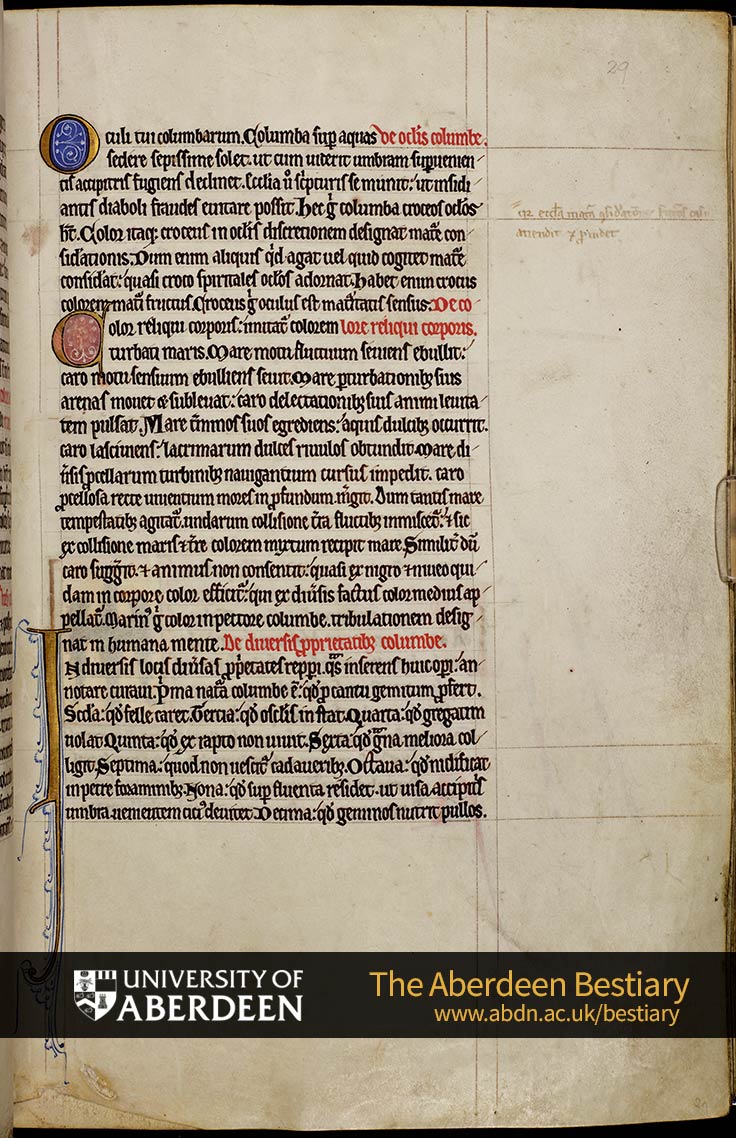 29
Oculi tui columbarum. Columba sup aquas De oclis columbe.
sedere sepissime solet. ut cum uiderit umbram supuenien
tis accipitris fugiens declinet. Ecclia ů scripturis se munit: ut insidi
antis diaboli fraudes euitare possit. Hec ǵ columba croceos oclos
ht. Color itaq; croceus in oclis discretionem designat mature con
sidationis. Dum enim aliquis qid agat uel quid cogitet mature
considat: quasi croco spiritales oclos adornat. Habet enim crocus
colorem maturi fructus. Croceus ǵ oculus est maturitatis sensus. De co
Color reliqui corporis: imitat colorem lore reliqui corporis.
turbati maris. Mare motu fluctuum seuiens ebullit:
caro motu sensuum ebulliens seuit. Mare pturbationibȝ suis
arenas mouet & subleuat: caro delectationibȝ suis animi leuita
tem pulsat. Mare tminos suos egrediens: aquis dulcibȝ occurrit.
caro lasciuiens: lacrimarum dulces riuulos obtundit. Mare di
uersis pcellarum turbinibȝ nauigantium cursus impedit. caro
pcellosa recte uiuentium mores in pfundum mgit. Dum tantis mare
tempestatibȝ agitat. undarum collisione tra fluctibȝ inmiscet: & sic
ex collisione maris & tre colorem mixtum recipit mare. Similit dū
caro suggerit. & animus non consentit: quasi ex nigro & niueo qui
dam in corpore color efficit: qui ex diuersis factus color medius ap
pellat. Marinus ǵ color in pectore columbe. tribulationem desig
nat in humana mente. De diuersis pprietatibȝ columbe.
In diuersis locis diuersas pprietates repperi. quas inserens huic operi: an
notare curaui. Prima natura columbe ē: qd p cantu gemitum pfert.
Scda: qd felle caret. Tercia: qd osclis instat. Quarta: qd gregatim
uolat. Quinta: qd ex rapto non uiuit. Sexta: qd grana meliora col
ligit. Septima: quod non uescit cadaueribȝ. Octaua: qd nidificat
in petre foraminibȝ. Nona: qd sup fluenta residet. ut uisa accipitris
umbra uenientem cicius deuitet. Decima: qd geminos nutrit pullos.
UNIVERSITY OF
ABERDEEN
The Aberdeen Bestiary
www.abdn.ac.uk/bestiary